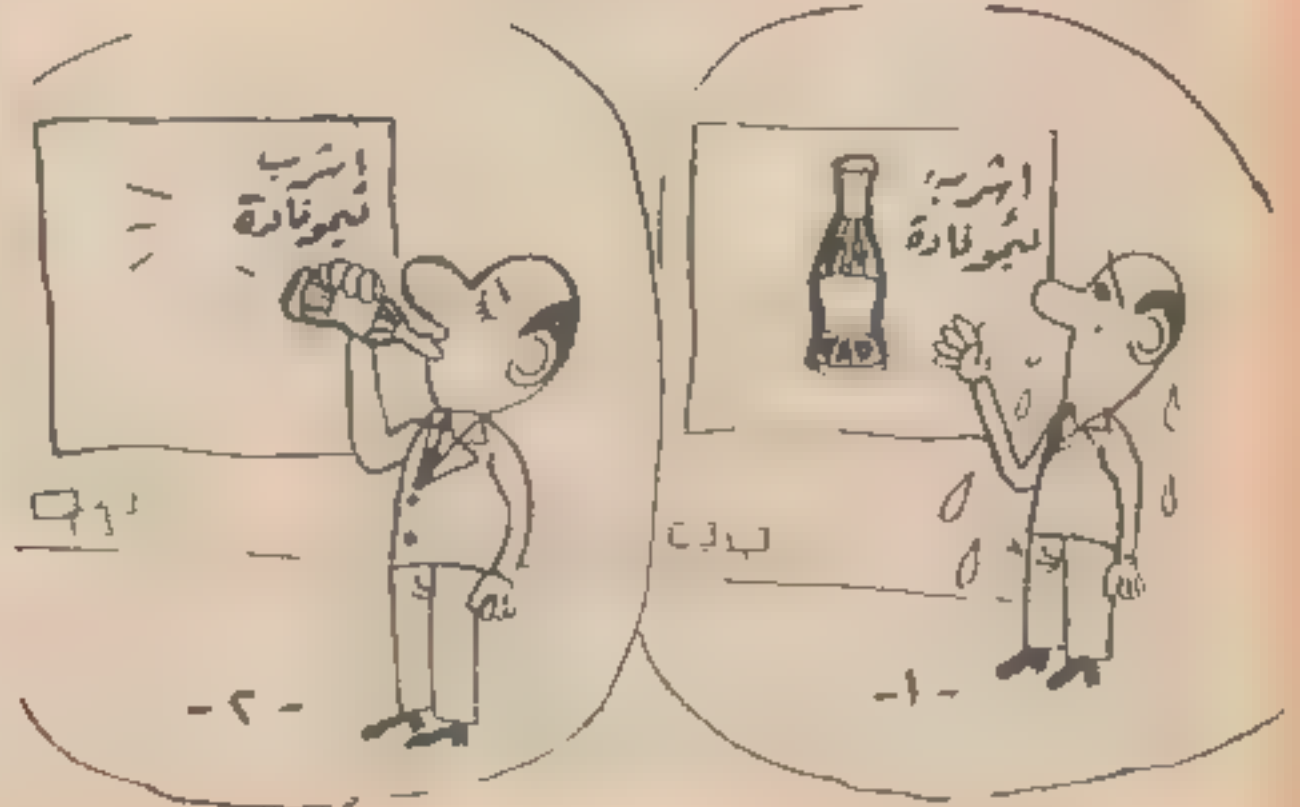 اشرب
ليمونادة
-١-
اشرب
ليمونادة
-٢-